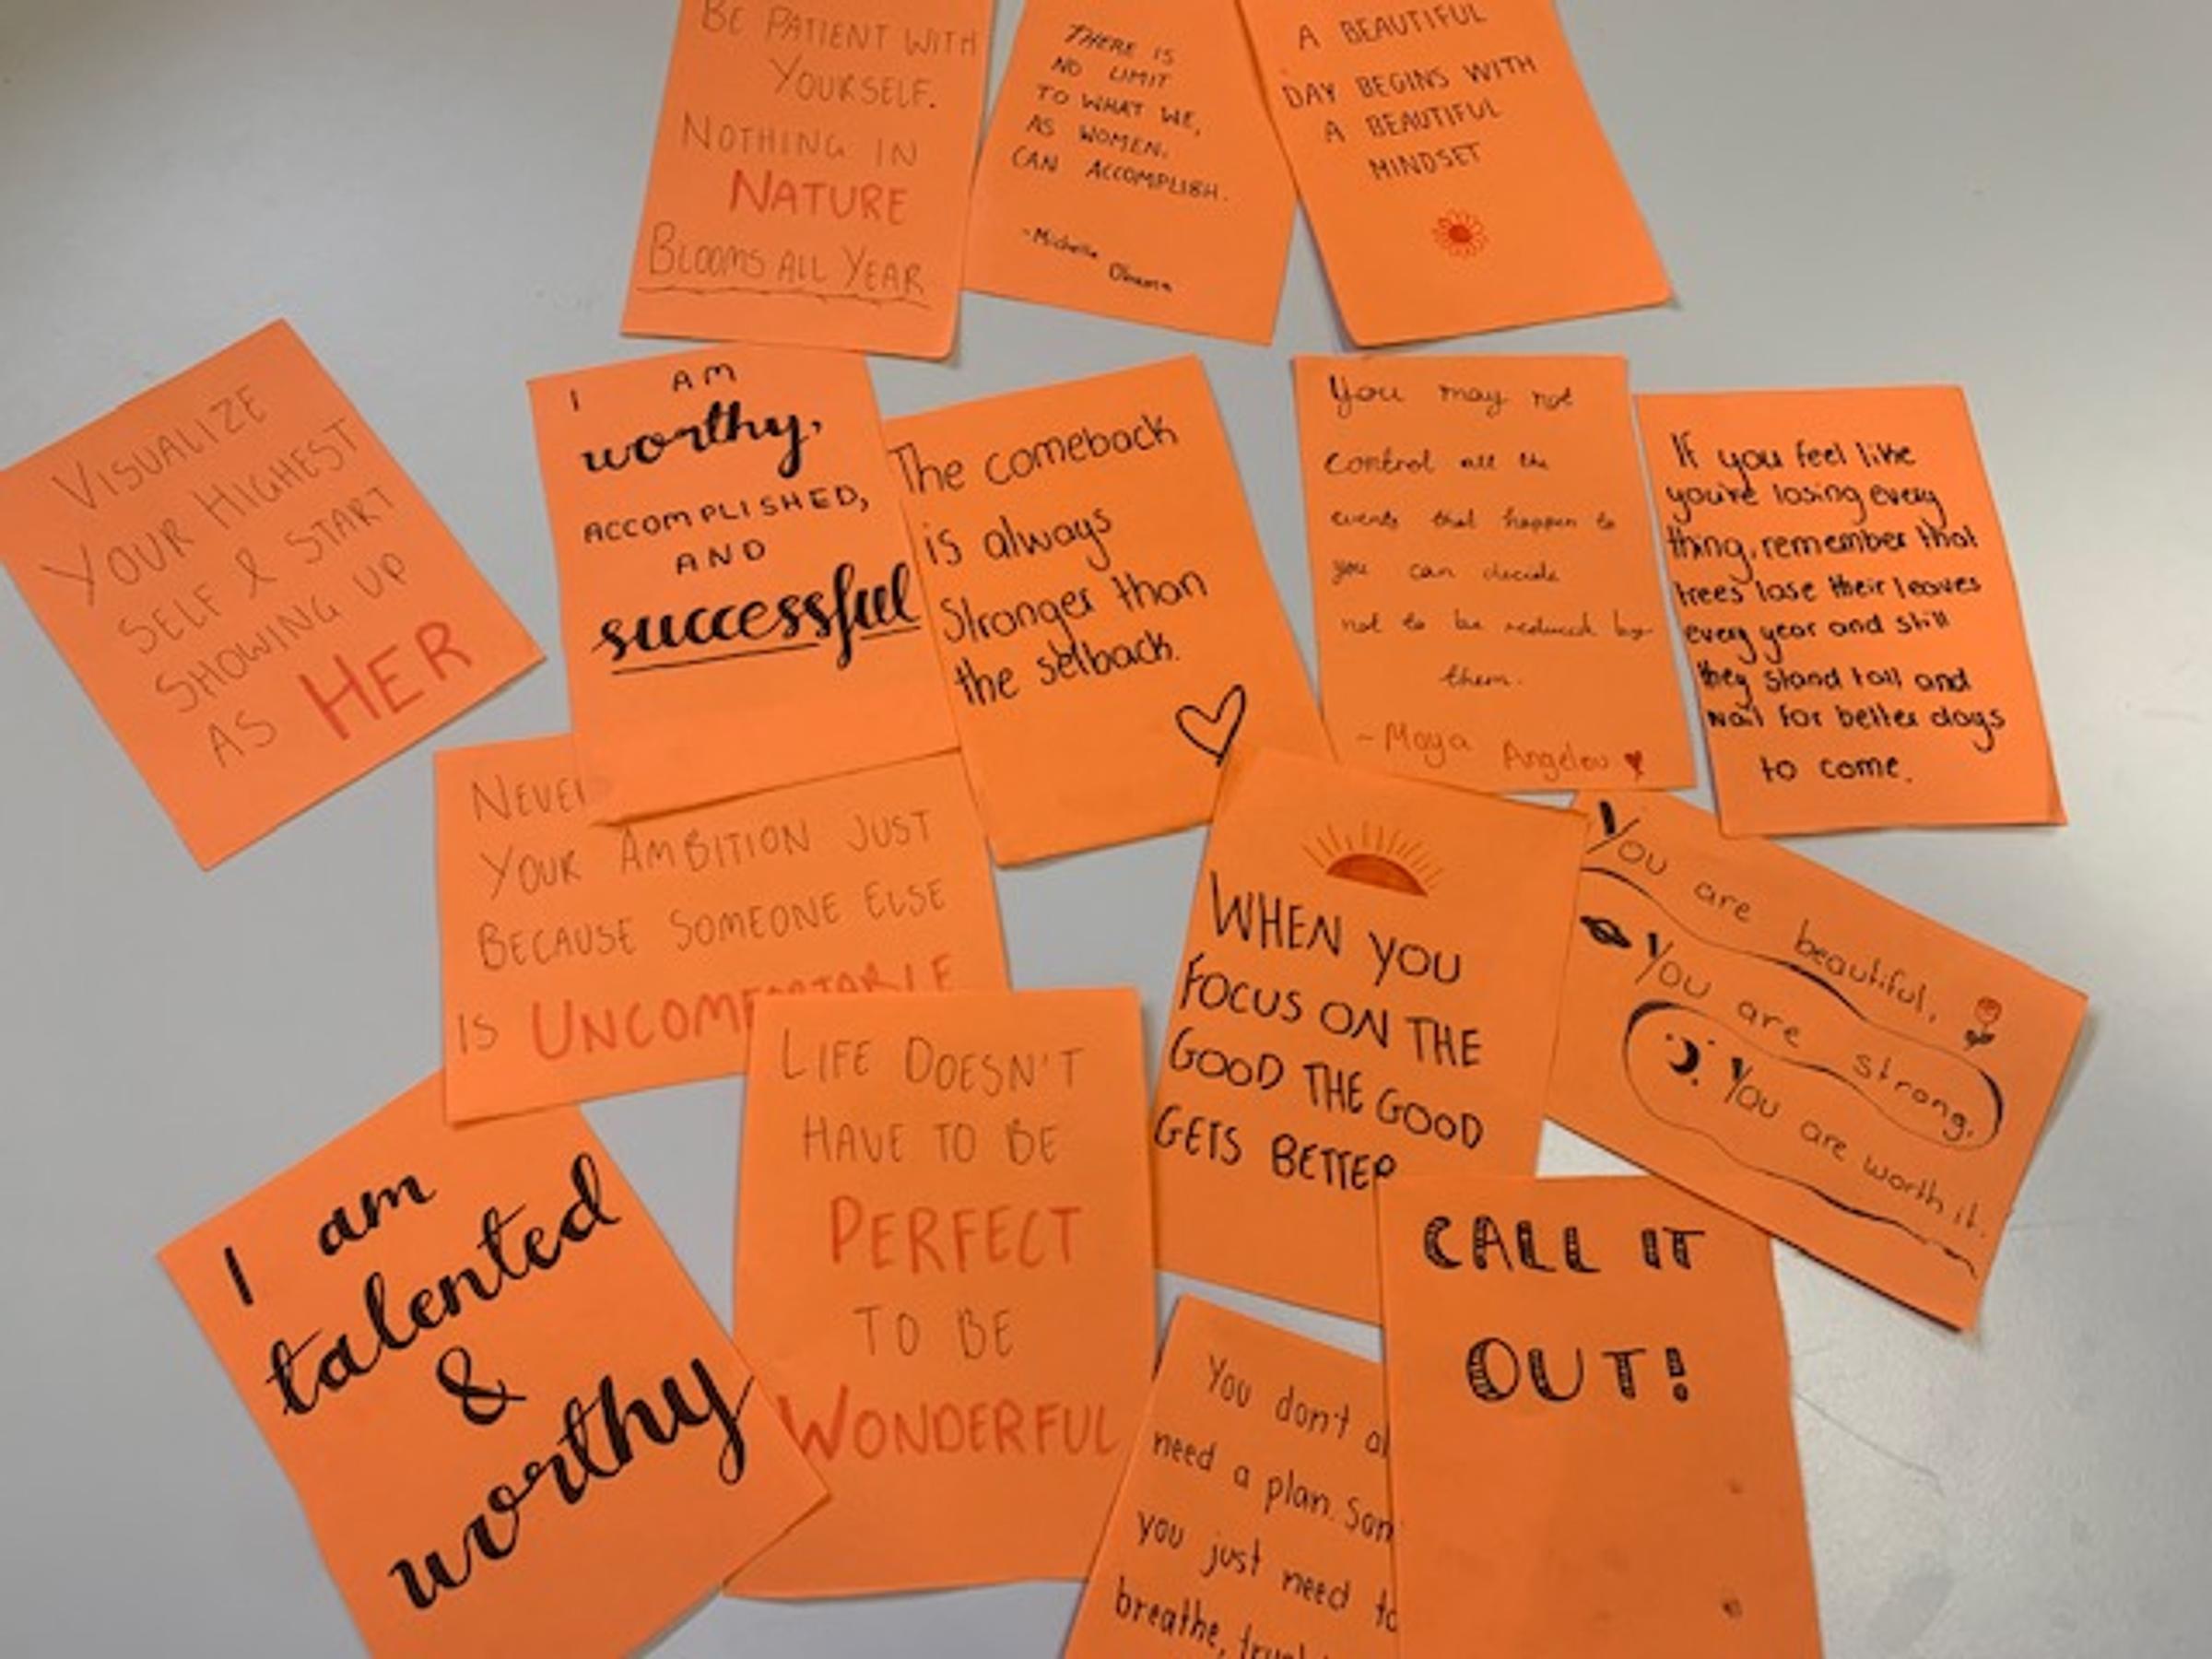 BE PATIENT WITH
YOURSELF.
NOTHING IN
NATURE
BLOOMS ALL YEAR
THERE IS
NO LIMIT
TO WHAT WE,
AS WOMEN,
CAN ACCOMPLISH.
-Michelle Obama
A BEAUTIFUL
DAY BEGINS WITH
A BEAUTIFUL
MINDSET
VISUALIZE
YOUR HIGHEST
SELF & START
SHOWING UP
AS HER
I AM
worthy,
ACCOMPLISHED,
AND
successful
The comeback
is always
Stronger than
the setback.
You may not
control all the
events that happen to
you can decide
not to be reduced by
them.
~Maya Angelou
If you feel like
you're losing every
thing, remember that
trees lose their leaves
every year and still
they stand tall and
wait for better days
to come.
NEVER
YOUR AMBITION JUST
BECAUSE SOMEONE ELSE
IS UNCOMFORTABLE
WHEN YOU
FOCUS ON THE
GOOD THE GOOD
GETS BETTER
You are beautiful,
You are strong.
You are worth it.
I am
talented
&
worthy
LIFE DOESN'T
HAVE TO BE
PERFECT
TO BE
WONDERFUL
You don't al
need a plan. Som
you just need to
breathe,
CALL IT
OUT!